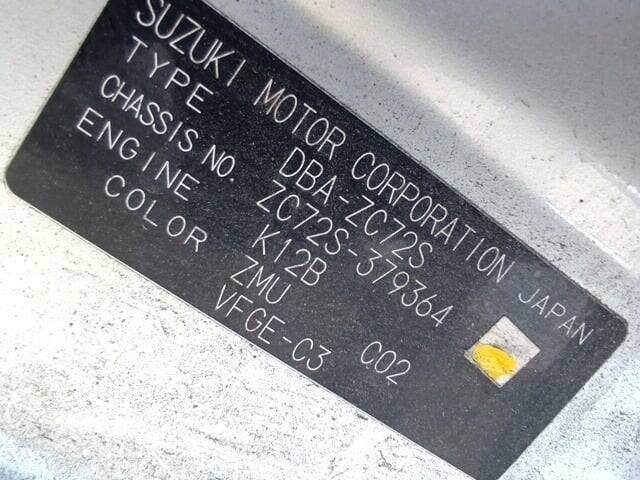 SUZUKI MOTOR CORPORATION JAPAN
TYPE DBA-ZC72S
CHASSIS NO. ZC72S-379364
ENGINE K12B
COLOR ZMU C02
VFGE-C3